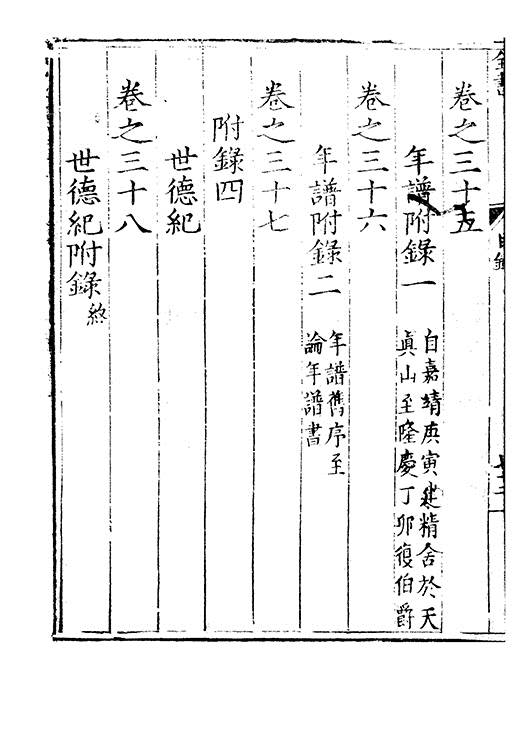 卷之三十五
年譜附錄一
自嘉靖庚寅建精舍於天
眞山至隆慶丁卯復伯爵
卷之三十六
年譜附錄二
年譜舊序至
論年譜書
卷之三十七
附錄四
世德紀
卷之三十八
世德紀附錄終